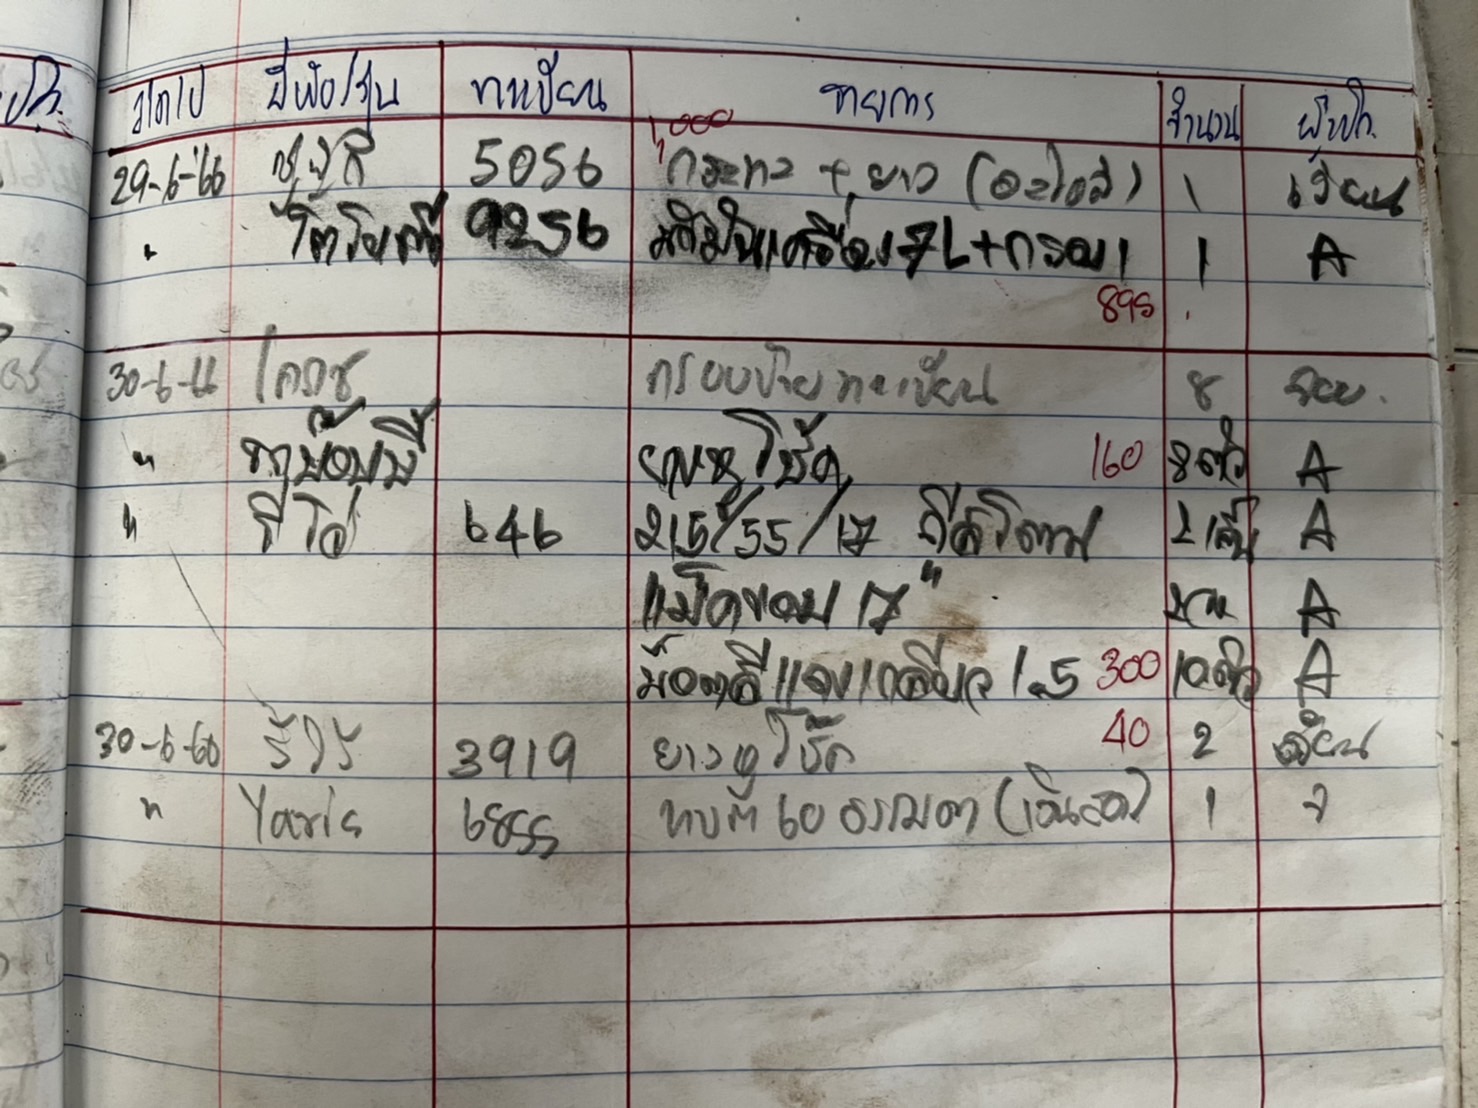 ว/ด/ป ยี่ห้อ/รุ่น ทะเบียน รายการ จำนวน ผู้เบิก
1,000
29-6-66 ซูซูกิ 5056 กระทะ + ยาว (อะไหล่) 1 เรียน
" โตโยต้า 9256 น้ำมันเครื่อง 7L+กรอง 1 1 A
895
30-6-66 กรอบป้ายทะเบียน 8
" ยางหูโช้ค 160 8 ตัว A
" รีโว่ 646 215/55/17 2 เส้น A
แม็คขอบ 17" A
น็อตสีแดงเกลียว 1.5 300 10 ตัว A
30-6-66 3919 ยางหูโช้ค 40 2 เรียน
" Yaris 6855 60 ธรรมดา (เงินสด) 1